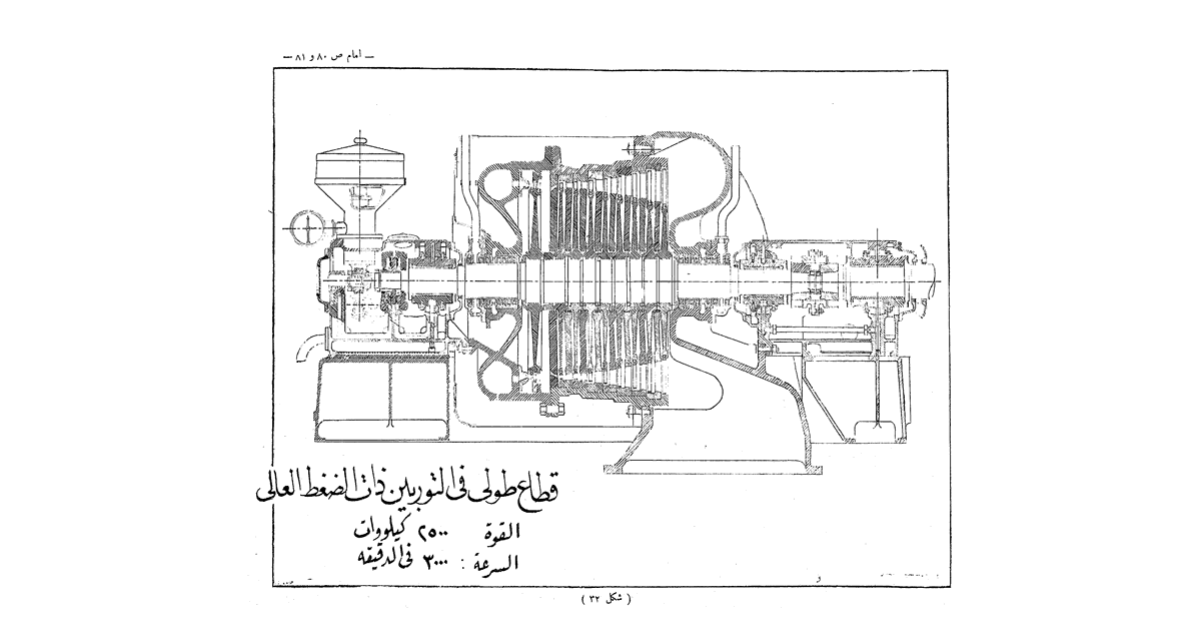 — امام ص ٨٠ و ٨١ —
قطاع طولى فى التوربين ذات الضغط العالى
القوة ٢٥٠٠ كيلووات
السرعة : ٣٠٠٠ فى الدقيقه
( شكل ٣٢ )